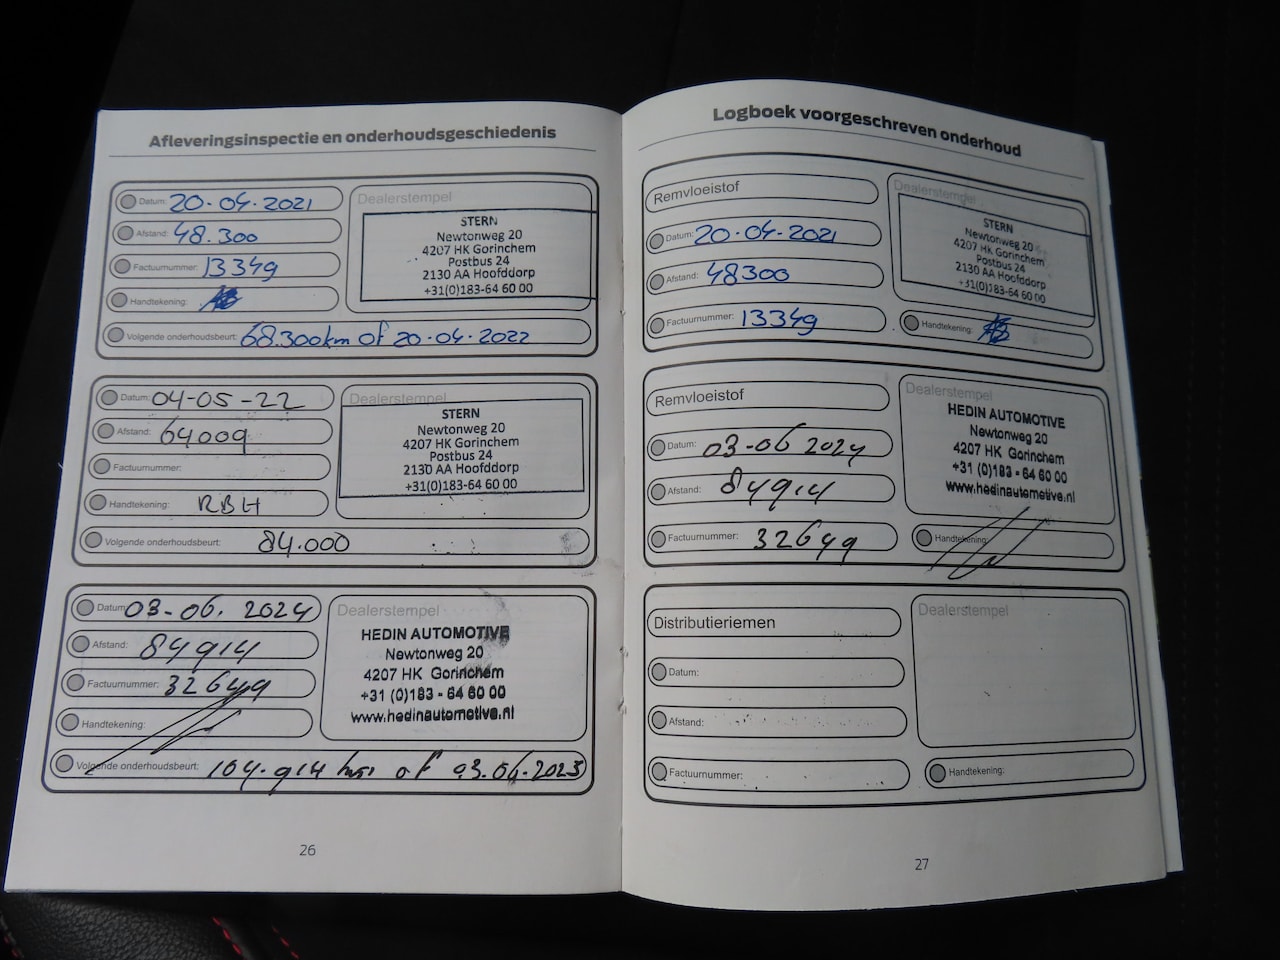 Afleveringsinspectie en onderhoudsgeschiedenis
Datum: 20-04-2021
Afstand: 48.300
Factuurnummer: 13349
Handtekening:
Volgende onderhoudsbeurt: 68.300km of 20-04-2022
Dealerstempel
STERN
Newtonweg 20
4207 HK Gorinchem
Postbus 24
2130 AA Hoofddorp
+31(0)183-64 60 00
Datum: 04-05-22
Afstand: 64009
Factuurnummer:
Handtekening: RBH
Volgende onderhoudsbeurt: 84.000
Dealerstempel
STERN
Newtonweg 20
4207 HK Gorinchem
Postbus 24
2130 AA Hoofddorp
+31(0)183-64 60 00
Datum: 03-06. 2024
Afstand: 84914
Factuurnummer: 32649
Handtekening:
Volgende onderhoudsbeurt: 104.914 of 03.06.2025
Dealerstempel
HEDIN AUTOMOTIVE
Newtonweg 20
4207 HK Gorinchem
+31 (0)183 - 64 60 00
www.hedinautomotive.nl
26
Logboek voorgeschreven onderhoud
Remvloeistof
Datum: 20-04-2021
Afstand: 48300
Factuurnummer: 13349
Dealerstempel
STERN
Newtonweg 20
4207 HK Gorinchem
Postbus 24
2130 AA Hoofddorp
+31(0)183-64 60 00
Handtekening:
Remvloeistof
Datum: 03-06 2024
Afstand: 84914
Factuurnummer: 32649
Dealerstempel
HEDIN AUTOMOTIVE
Newtonweg 20
4207 HK Gorinchem
+31 (0)183 - 64 60 00
www.hedinautomotive.nl
Handtekening:
Distributieriemen
Datum:
Afstand:
Factuurnummer:
Dealerstempel
Handtekening:
27